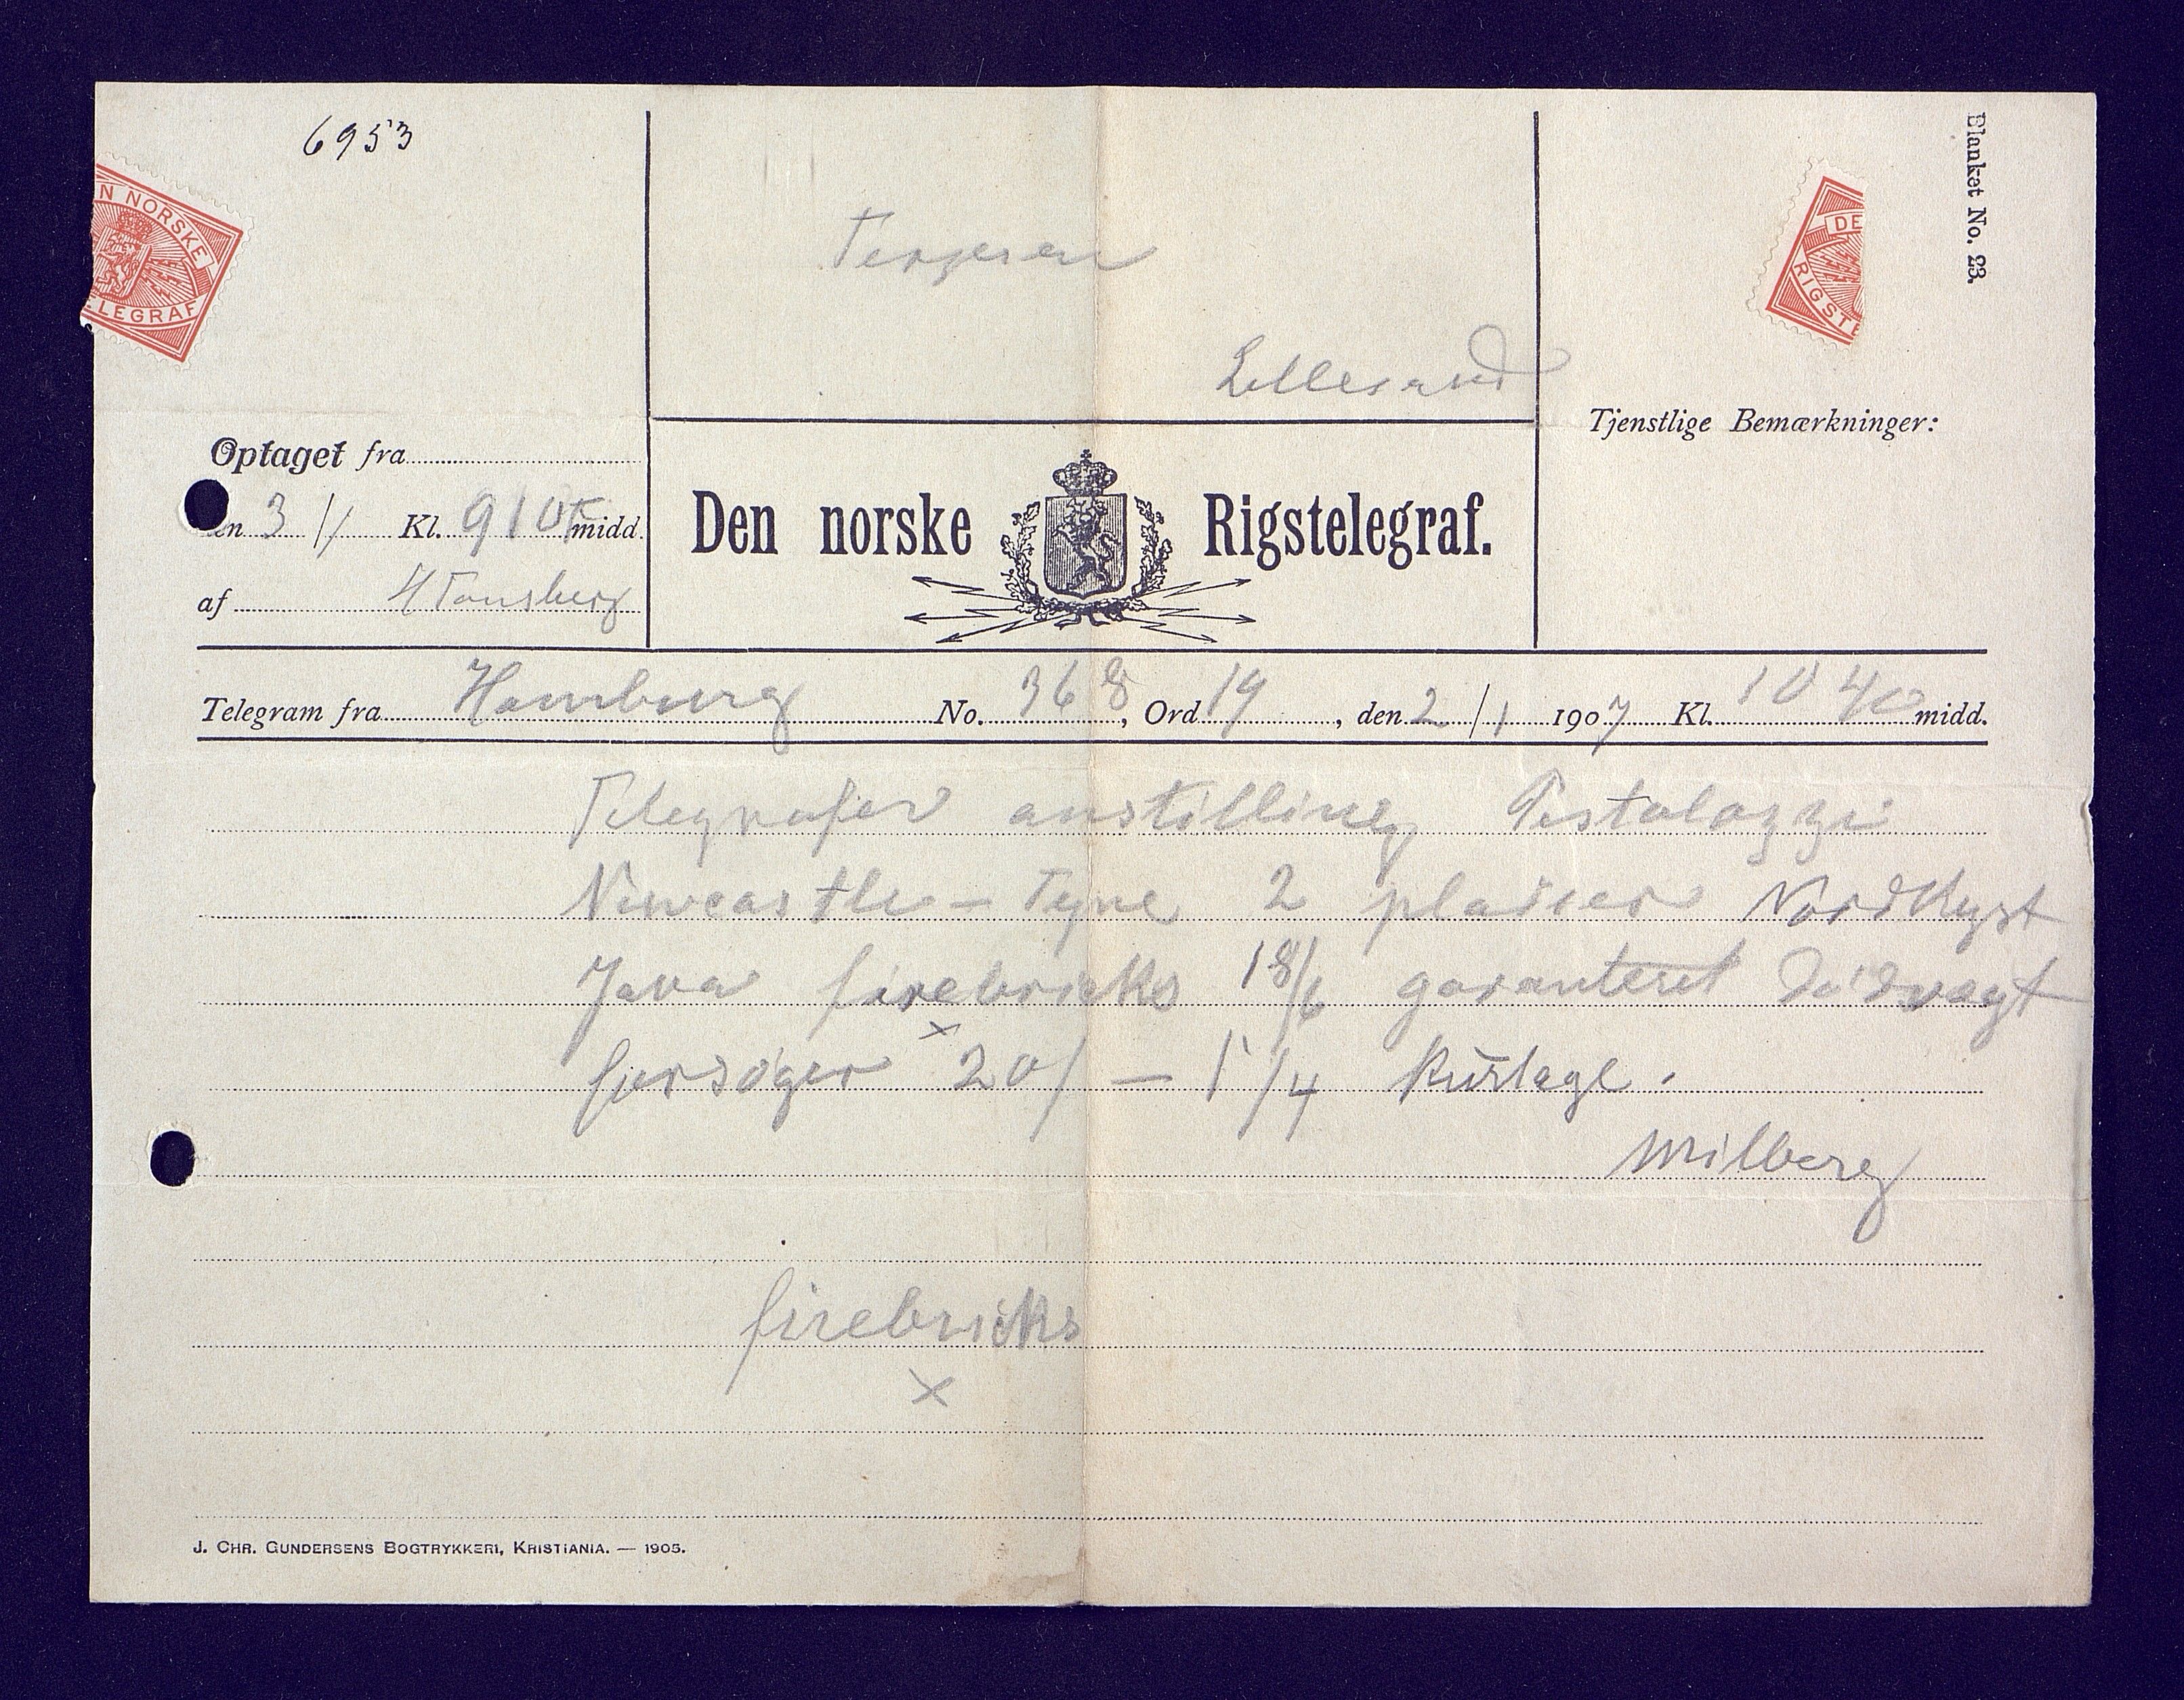 6953
Blanket No. 23.
N NORSKE
LEGRAF
DE
RIGSTE
Terjesen
Lillesand
Tjenstlige Bemærkninger:
Optaget fra
en 3/1 Kl. 910 F midd.
af H Tønsberg
Den norske Rigstelegraf.
Telegram fra Hamburg No. 368, Ord 19, den 2/1 1907 Kl. 10 40 midd.
Telegrafer anstilling Pestalozzi
Newcastle-Tyne 2 pladser Nordkyst
Java firebricks 18/6 garanteret dødvægt
forsøger 20/ — 1 1/4 kurtage.
Milberg
firebricks
x
J. CHR. GUNDERSENS BOGTRYKKERI, KRISTIANIA. — 1905.